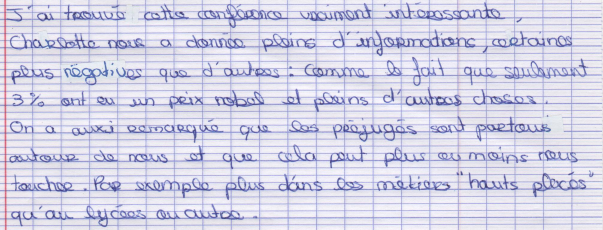 J'ai trouvé cette conférence vraiment intéressante,
Charlotte nous a donnée pleins d'informations, certaines
plus négatives que d'autres : comme le fait que seulement
3% ont eu un prix nobel et pleins d'autres choses.
On a aussi remarqué que les préjugés sont partout
autour de nous et que cela peut plus ou moins nous
toucher. Par exemple plus dans les métiers "hauts placés"
qu'au lycées ou autre.